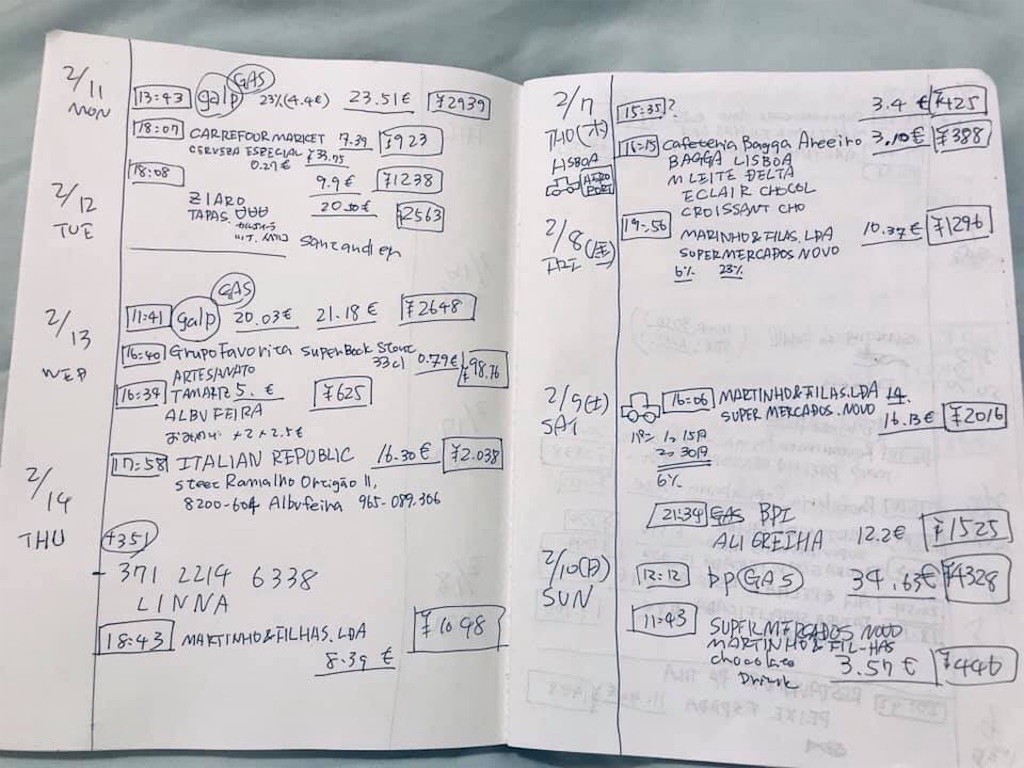 2/11
MON
13:43 galp GAS 23%(4.4€) 23.51€ ¥2939
18:07 CARREFOUR MARKET 7.39 ¥923
CERVEZA ESPECIAL
0.27€
18:08 9.9€ ¥1238
2/12
TUE
ZIARO 20.50€ ¥2563
TAPAS.
2/13
WED
11:41 galp GAS 20.03€ 21.18€ ¥2648
16:40 Grupo Favorita SuperBock Stout
33cl 0.79€ ¥98.76
ARTESANATO
16:39 TAMARIZ 5.€ ¥625
ALBUFEIRA
+2×2.5€
2/14
THU
17:58 ITALIAN REPUBLIC 16.30€ ¥2.038
Steec Ramalho Ortigão 11,
8200-604 Albufeira 965-089.306
+351
- 371 2214 6338
LINNA
18:43 MARTINHO&FILHAS.LDA ¥1098
8.39€
2/7
THU(木)
LISBOA
AERO
PORT
15:35? 3.4€ ¥425
16:15 Cafeteria Bagga Areeiro 3.10€ ¥388
BAGGA LISBOA
M LEITE DELTA
ECLAIR CHOCOL
CROISSANT CHO
2/8(金)
FRI
19:56 MARINHO&FILAS.LDA 10.37€ ¥1296
SUPERMERCADOS NOVO
6% 23%
2/9(土)
SAT
16:06 MARTINHO&FILAS.LDA 14.
SUPERMERCADOS.NOVO 16.13€ ¥2016
6%
21:34 GAS BPI
12.2€ ¥1525
2/10(日)
SUN
12:12 bp GAS 34.63€ ¥4328
11:43 SUPFILMERCADOS NOVO
MARTINHO&FIL-HAS
chocolate
Drink 3.57€ ¥446